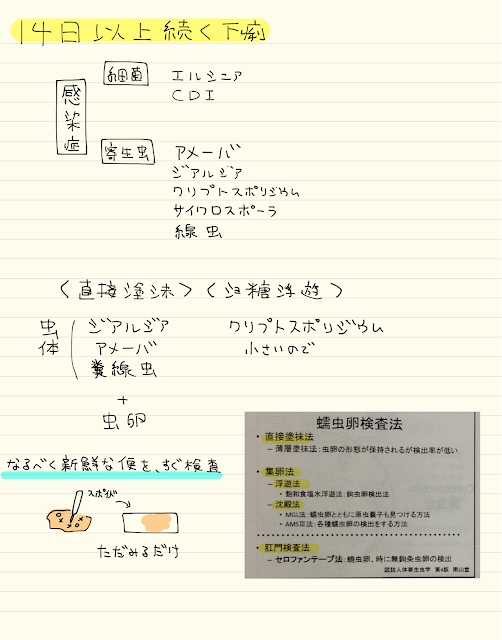 14日以上続く下痢
感染症
細菌 エルシニア
CDI
寄生虫 アメーバ
ジアルジア
クリプトスポリジウム
サイクロスポーラ
線虫
〈直接塗沫〉〈ショ糖浮遊〉
虫体 ジアルジア クリプトスポリジウム
アメーバ 小さいので
糞線虫
+
虫卵
なるべく新鮮な便を、すぐ検査
スポイト
ただみるだけ
蠕虫卵検査法
• 直接塗抹法
– 薄層塗抹法:虫卵の形態が保持されるが検出率が低い
• 集卵法
– 浮遊法
• 飽和食塩水浮遊法:鉤虫卵検出法
– 沈殿法
• MGL法:蠕虫卵とともに原虫嚢子も見つける方法
• AMSⅢ法:各種蠕虫卵の検出をする方法
• 肛門検査法
– セロファンテープ法:蟯虫卵、時に無鉤条虫卵の検出
図説人体寄生虫学 第4版 南山堂